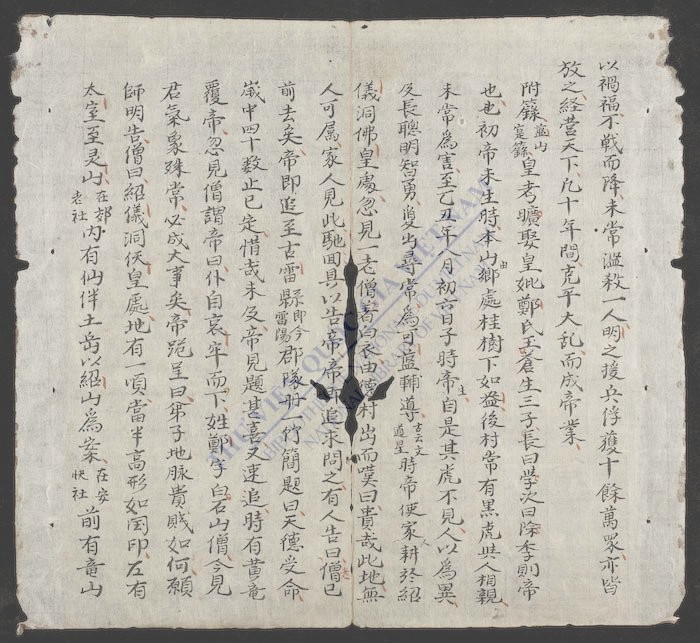 以禍福不戦而降未常濫殺一人明之援兵俘獲十餘萬眾亦皆
放之経营天下凢十年間克平大乱而成帝業
附籙藍山寔籙皇考曠娶皇妣鄭氏玉蒼生三子長曰学次曰除李則帝
也也初帝未生時本山鄉處桂樹下如盎後村常有黒虎共人相親
未常為害至乙丑年八月初六日子時帝生自是其虎不見人以為異
及長聦明智勇夐出尋常為可藍輔導時帝使家耕於紹
儀洞佛皇處忽見一老僧着白衣由德村出而嘆曰貴哉此地無
人可属家人見此馳囬具以告帝帝即追求問之有人告曰僧已
前去矣帝即追至古雷縣即今雷陽郡隊册竹簡題曰天德受命
嵗中四十数止已定惜哉未及帝見題甚喜又速追時有黄竜
覆帝忽見僧謂帝曰仆自哀牢而下姓鄭字白石山僧今見
君氣象殊常必成大事矣帝跪呈曰第子地脉貴賎如何願
師明告僧曰紹儀洞佚皇處地有一頃當半高形如囯印左有
太室至灵山在郊老社內有仙伴土岳以紹山為案在安快社前有竜山
THƯ VIỆN QUỐC GIA VIỆT NAM
NATIONAL LIBRARY OF VIETNAM